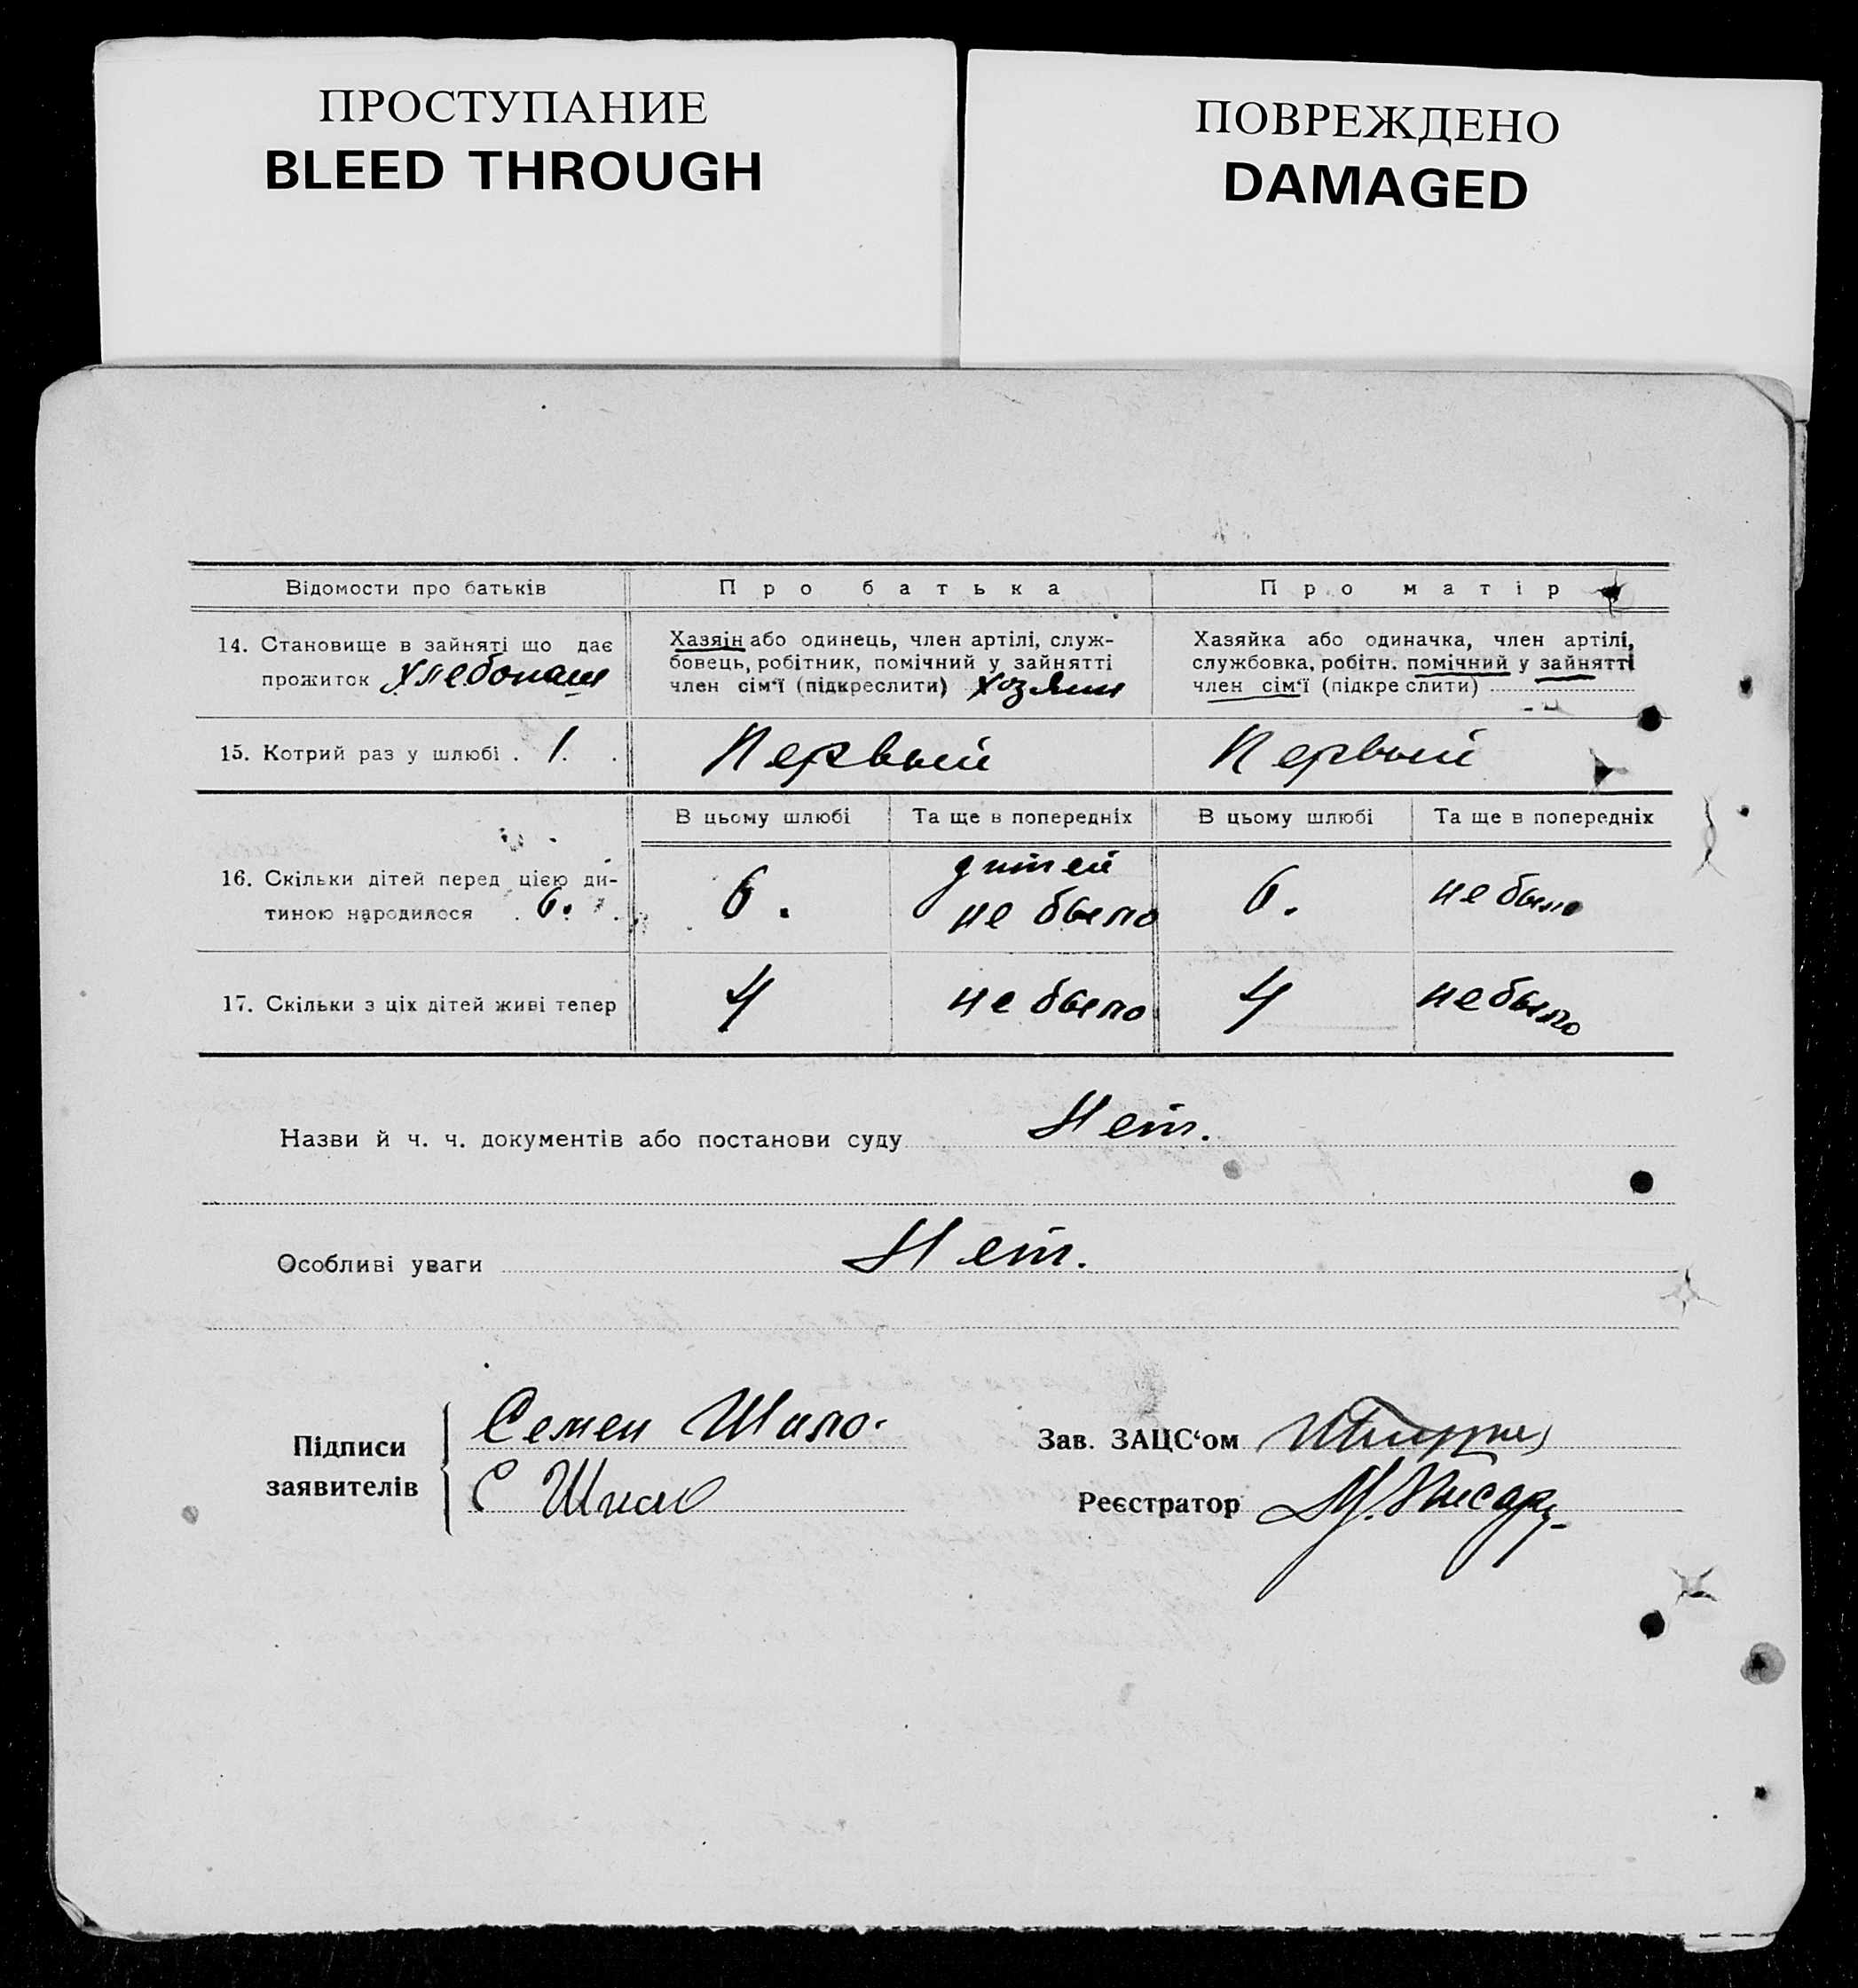 ПРОСТУПАНИЕ
BLEED THROUGH
ПОВРЕЖДЕНО
DAMAGED
Відомости про батьків
Про батька
Про матір
14. Становище в зайняті що дає
прожиток хлебопаш
Хазяін або одинець, член артілі, служ-
бовець, робітник, помічний у зайнятті
член сім'ї (підкреслити) хозяин
Хазяйка або одиначка, член артілі,
службовка, робітн. помічний у зайнятті
член сім'ї (підкреслити)
15. Котрий раз у шлюбі . 1. .
Первый
Первый
В цьому шлюбі
Та ще в попередніх
В цьому шлюбі
Та ще в попередніх
16. Скільки дітей перед цією ди-
тиною народилося . 6. .
6.
дитей
не было
6.
не было
17. Скільки з ціх дітей живі тепер
4
не было
4
не было
Назви й ч. ч. документів або постанови суду Нет.
Особливі уваги Нет.
Підписи
заявителів
Семен Шило.
С Шило
Зав. ЗАЦС‘ом
Реєстратор М.